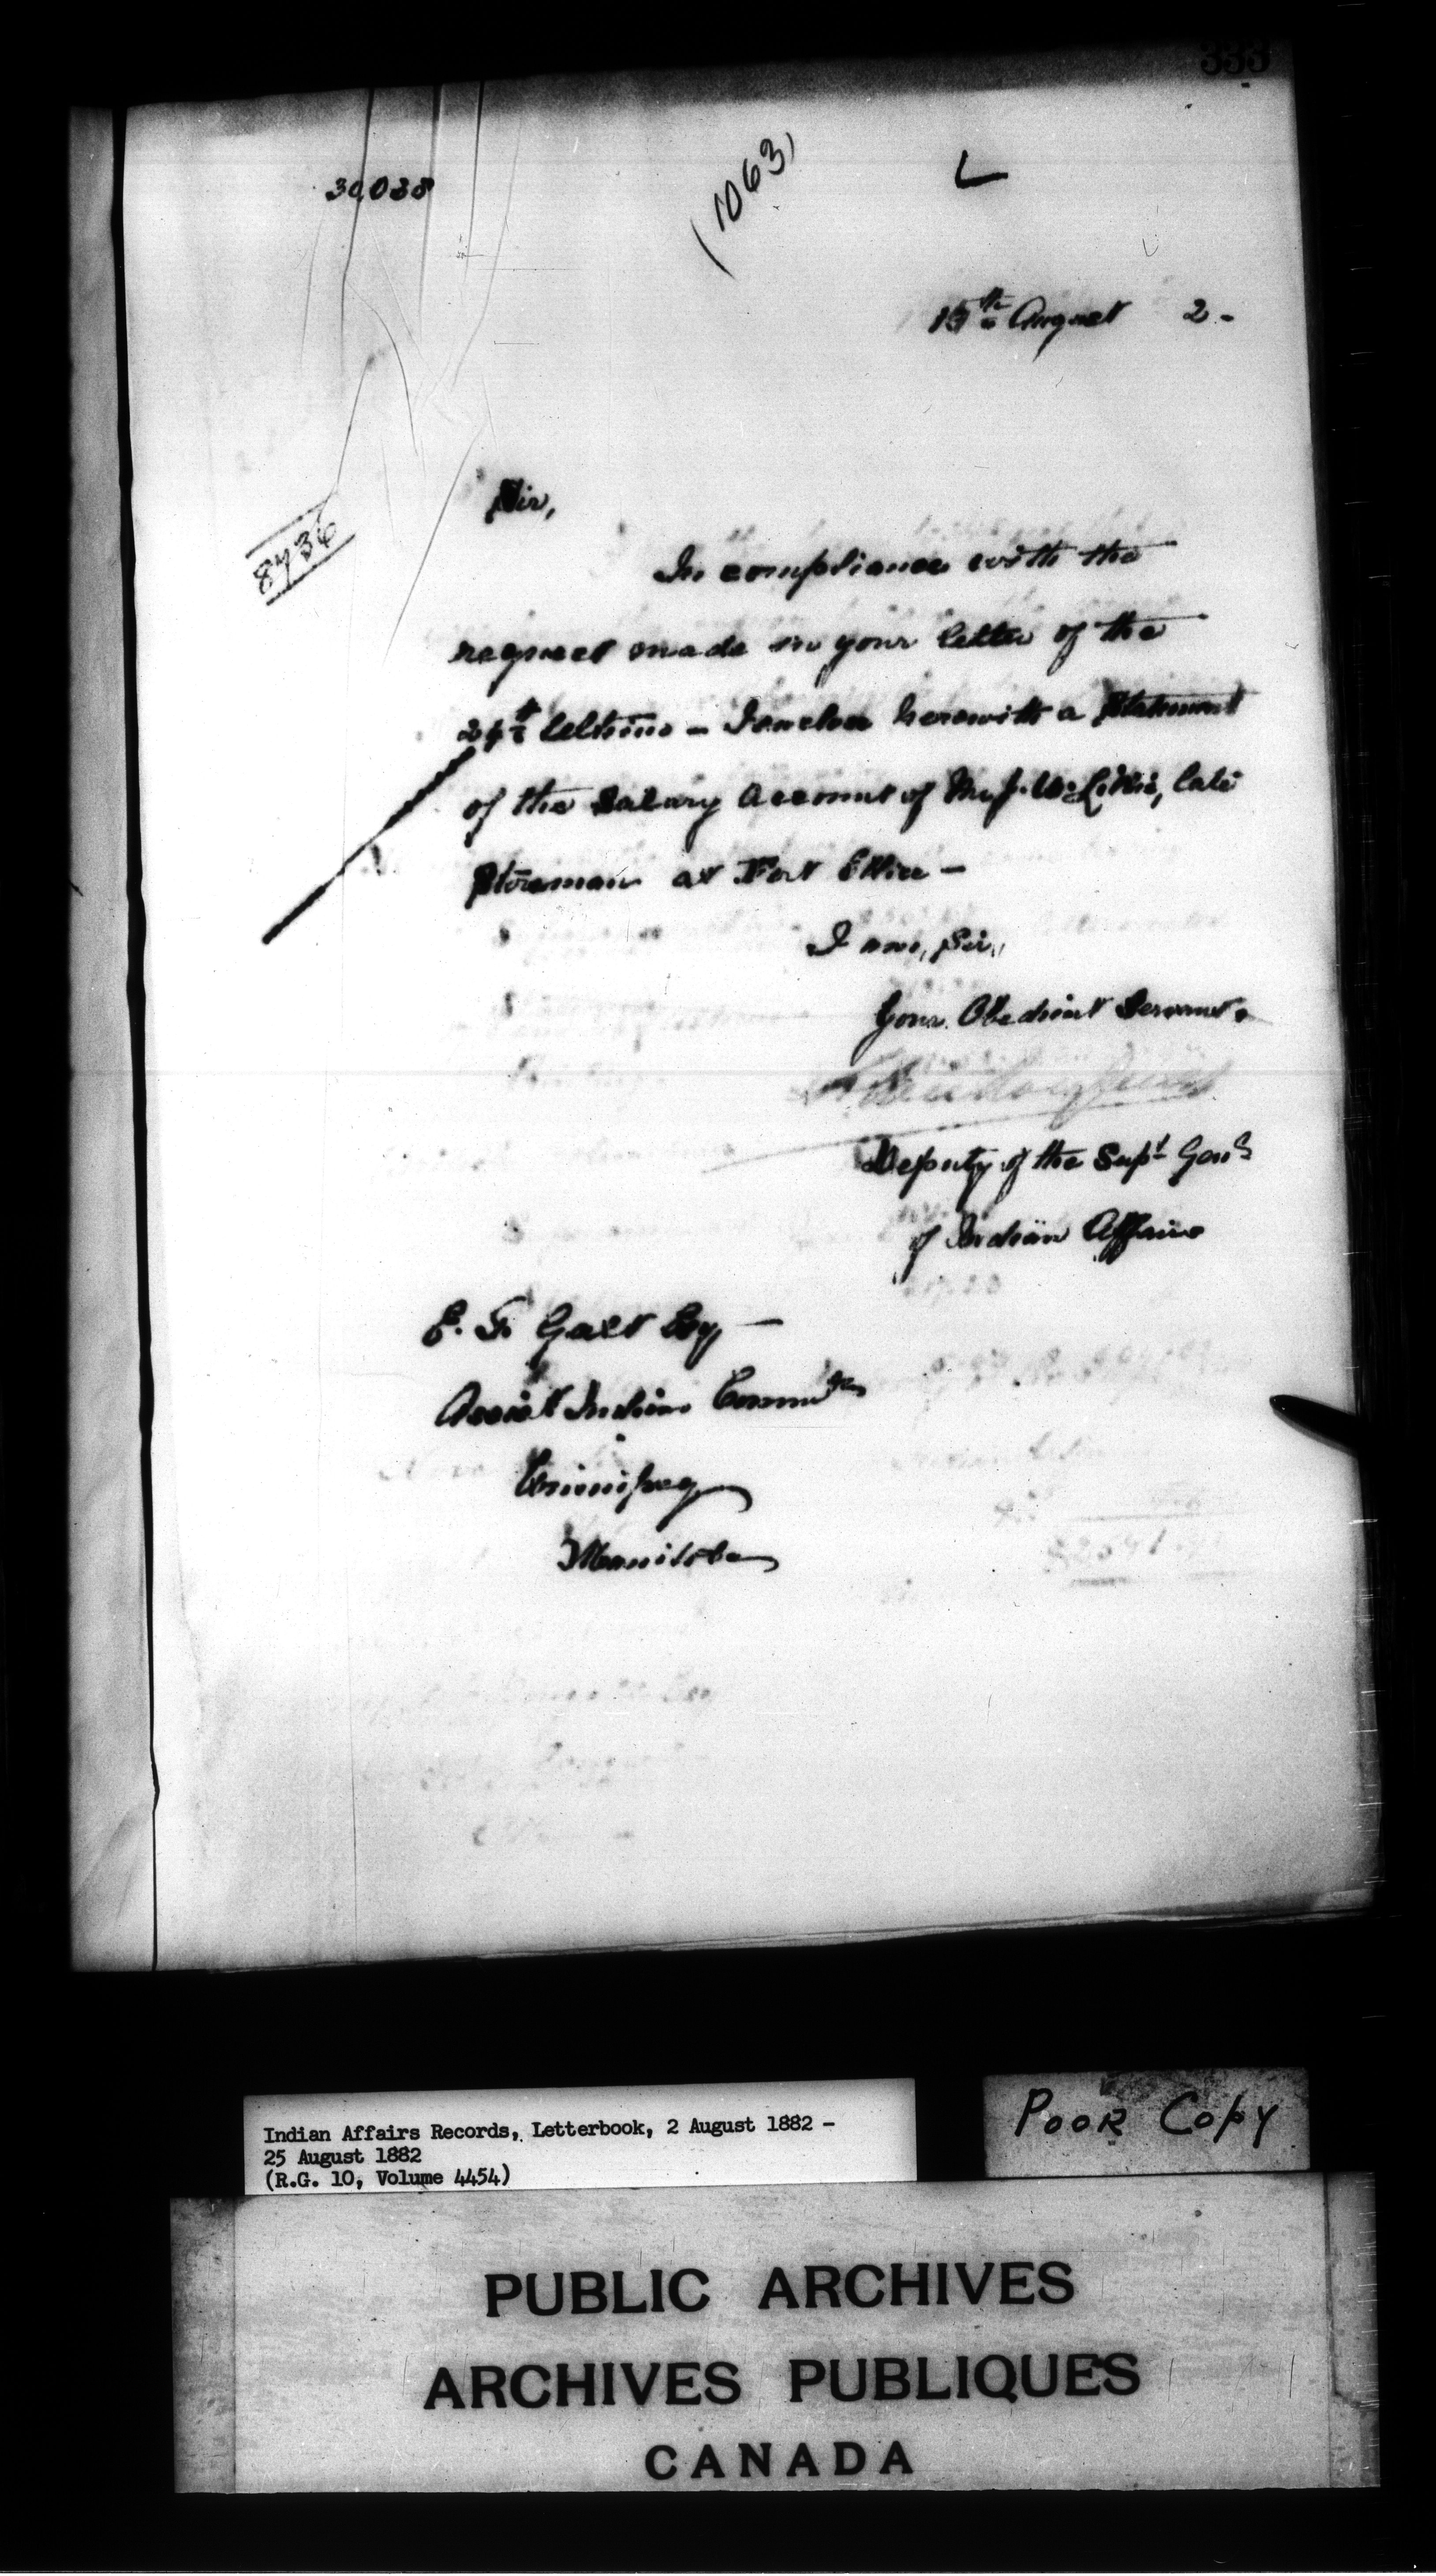 333
30,038
(1063)
15th August 2-
Sir,
8736
In compliance with the
request made in your letter of the
24th Ultimo - I enclose herewith a Statement
of the Salary Account of Mr J. W. Lillie, late
Storeman at Fort Ellice -
I am, Sir,
Your Obedient Servant.
Deputy of the Supt Genl
of Indian Affairs
E. T. Galt Esq -
Assist Indian Commr
Winnipeg
Manitoba
Indian Affairs Records, Letterbook, 2 August 1882 -
25 August 1882
(R.G. 10, Volume 4454)
POOR COPY
PUBLIC ARCHIVES
ARCHIVES PUBLIQUES
CANADA